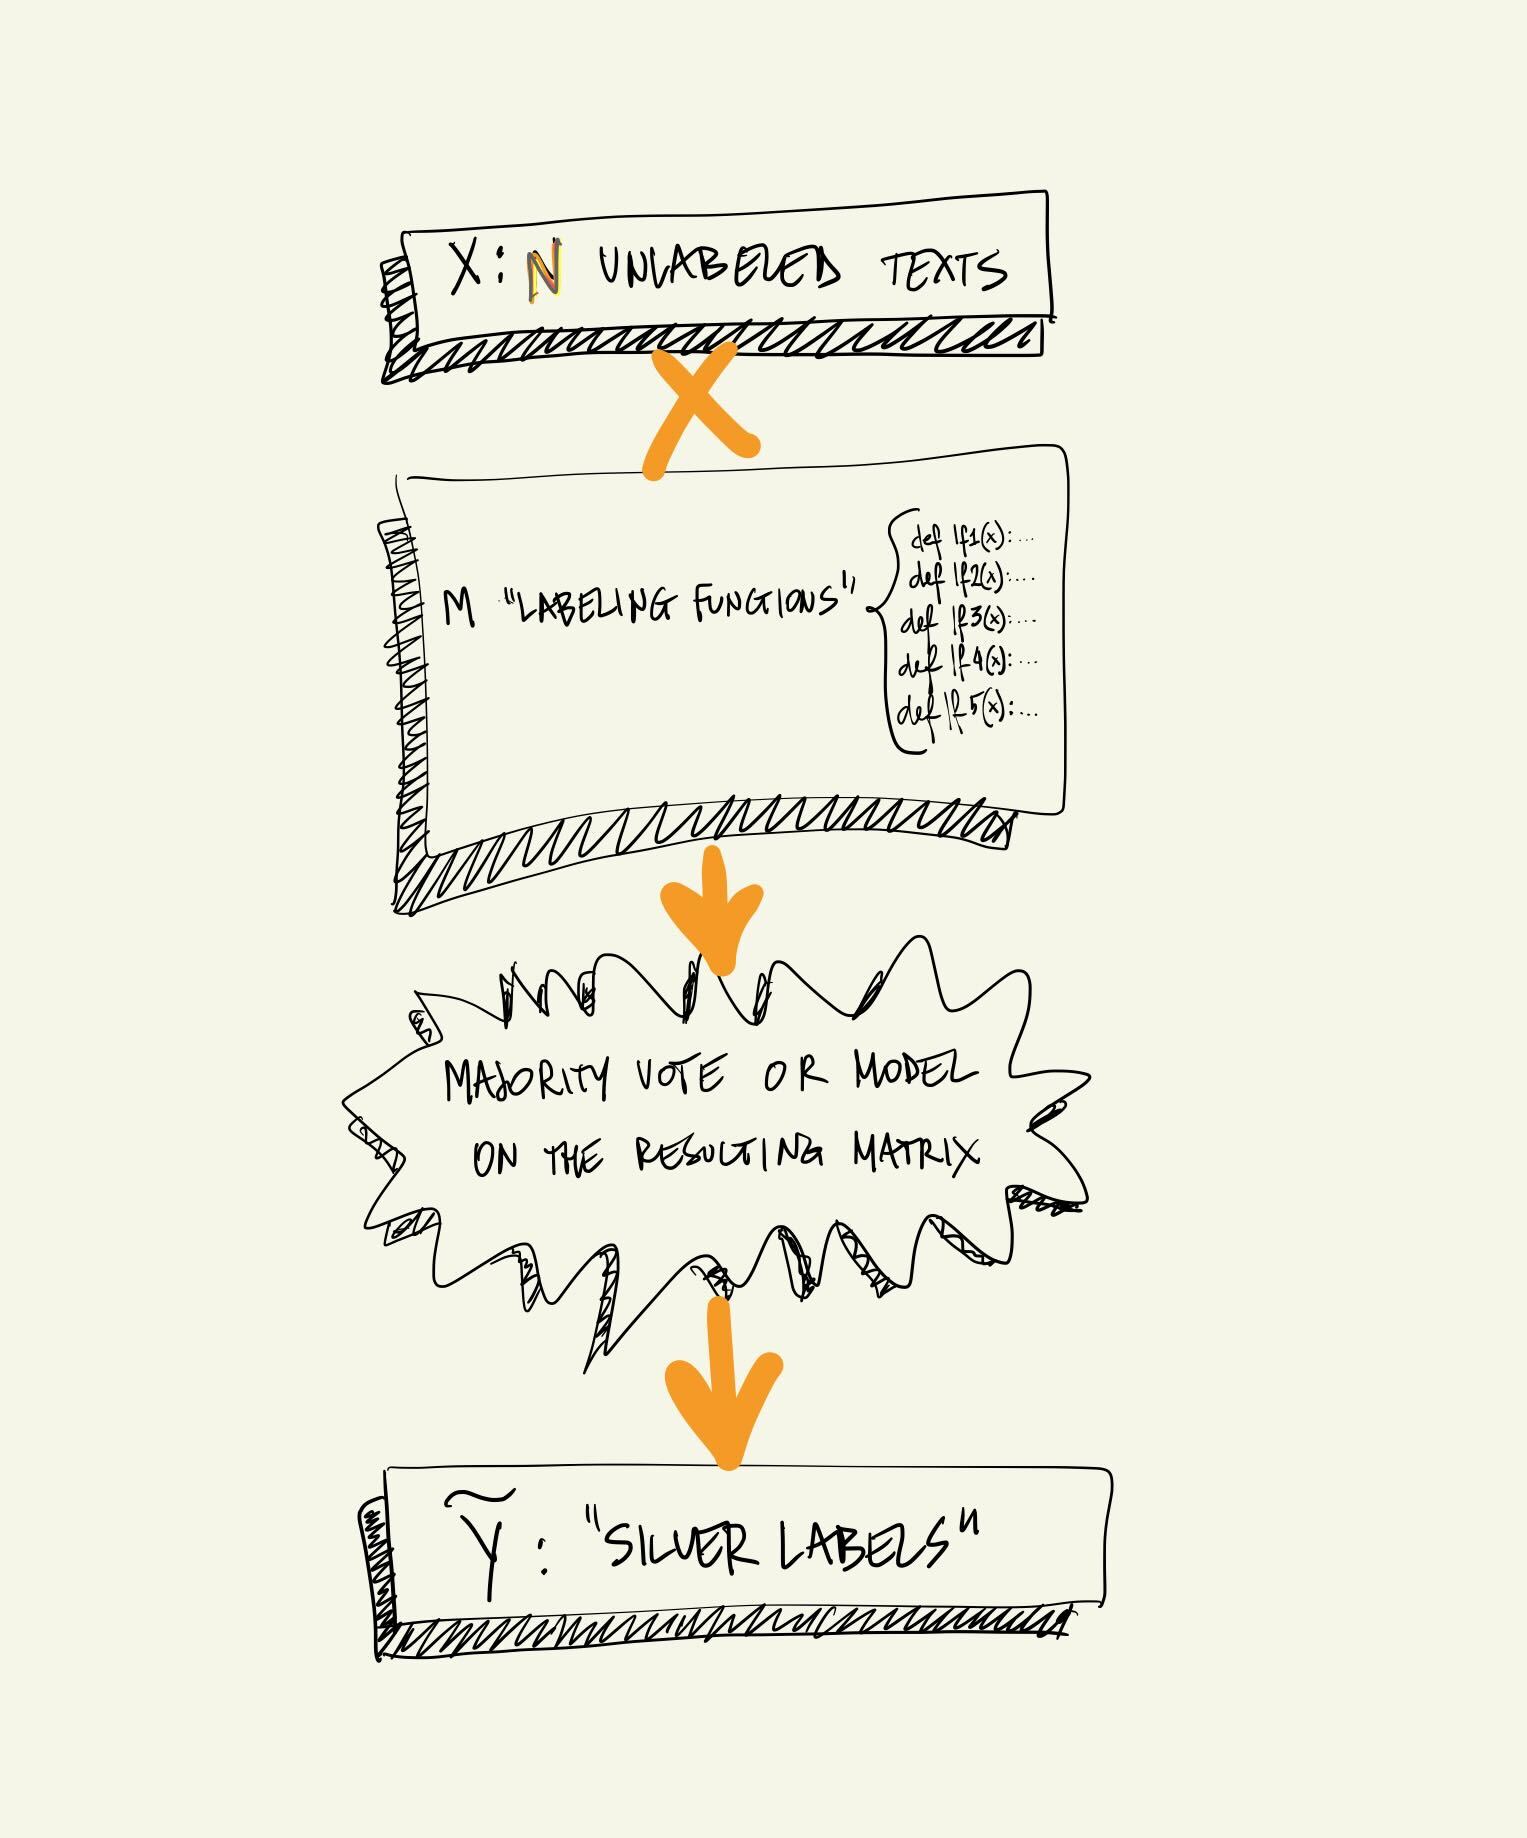 X: N UNLABELED TEXTS
M "LABELING FUNCTIONS"
def lf1(x):...
def lf2(x):...
def lf3(x):...
def lf4(x):...
def lf5(x):...
MAJORITY VOTE OR MODEL
ON THE RESULTING MATRIX
Ỹ: "SILVER LABELS"